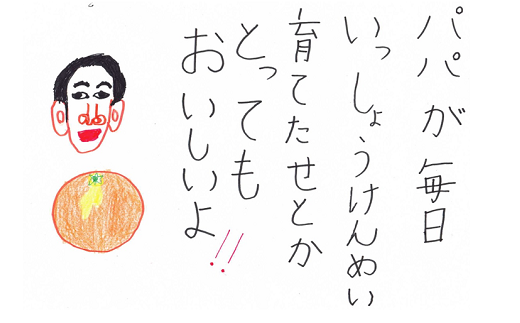 パパが毎日
いっしょうけんめい
育てたせとか
とっても
おいしいよ!!